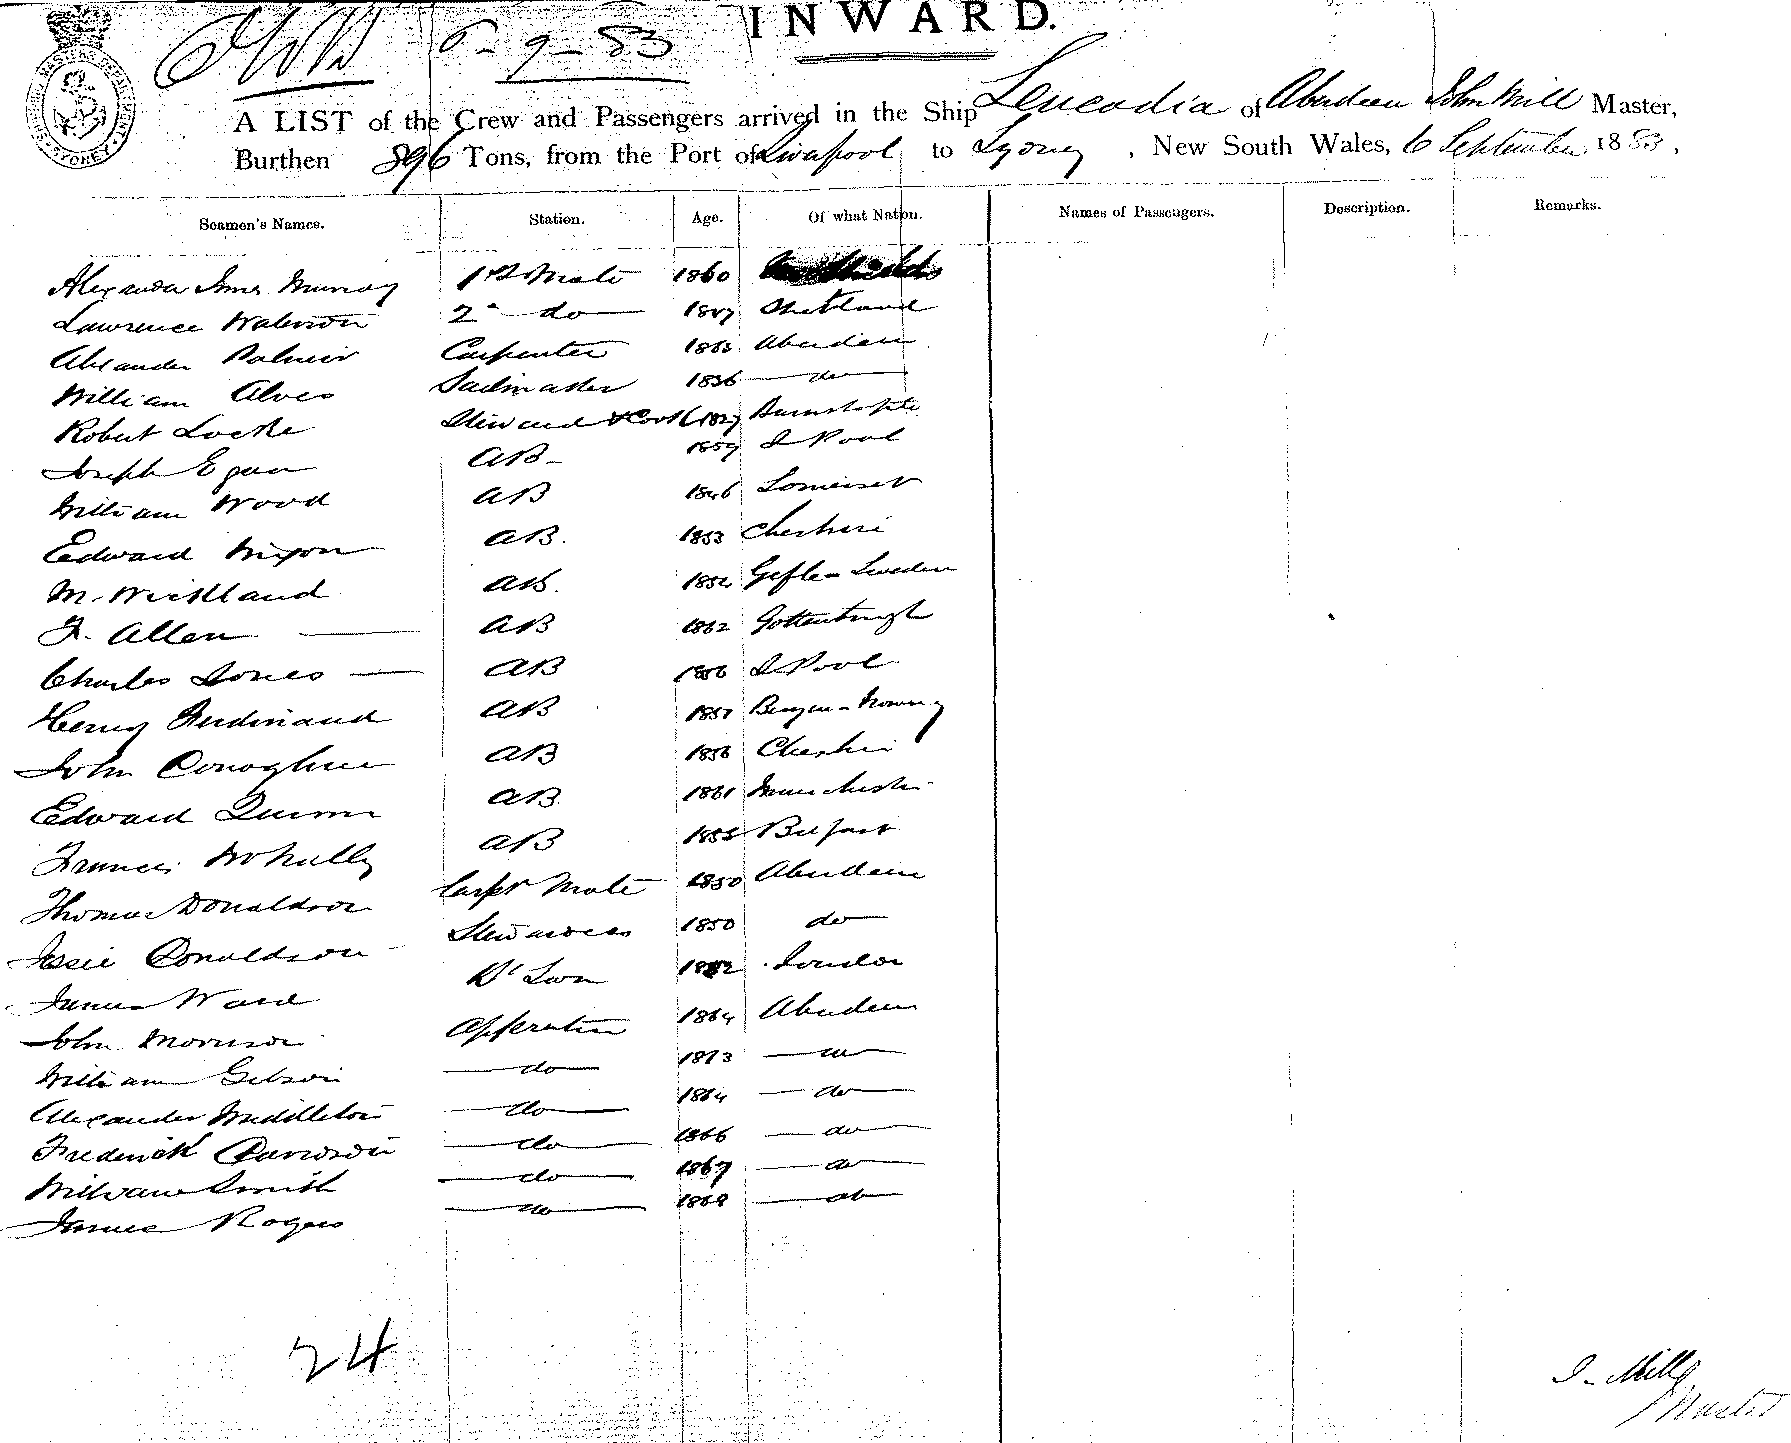 INWARD.
6-9-83
A LIST of the Crew and Passengers arrived in the Ship Leucadia of Aberdeen John Mill Master,
Burthen 896 Tons, from the Port of Liverpool to Sydney, New South Wales, 6 September 1883.
Seamen's Names. Station. Age. Of what Nation. Names of Passengers. Description. Remarks.
Alexander Innes Murray 1st Mate 1860
Lawrence Waterson 2d do Shetland
Alexander Palmer Carpenter Aberdeen
William Alves Sailmaker 1836 do
Robert Locke Steward & Cook Barnstaple
Joseph Egan AB 1859 L Pool
William Wood AB 1846 Somerset
Edward Nixon AB. 1853 Cheshire
M. Wicklund AB. 1852 Gefle - Sweden
F. Allen AB 1862 Gottenburgh
Charles Jones AB L Pool
Henry Ferdinand AB 1857 Bergen - Norway
John Conoghue AB Cheshire
Edward Quinn AB 1861 Manchester
Francis McNally AB 1855 Belfast
Thomas Donaldson Carpr Mate 1850 Aberdeen
Jessie Donaldson Stewardess 1850 do
James Ward London
John Morrison Apprentice 1864 Aberdeen
William Gibson do do
Alexander Middleton do 1864 do
Frederick Davidson do 1866 do
William Smith do 1867 do
James Rogers do do
24
J. Mill
Master